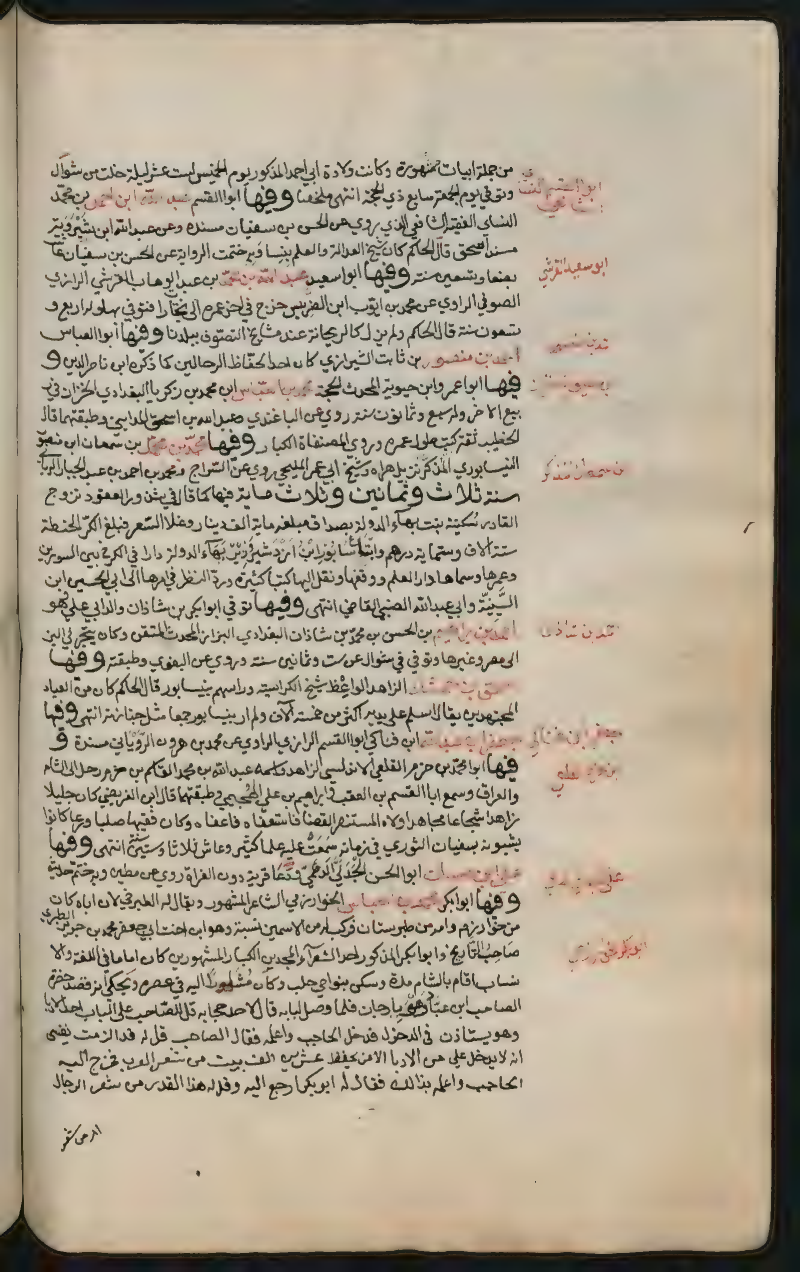 من جملة ابيات مشهورة وكانت ولادة ابي احمد المذكور يوم الخميس لست عشر ليلة خلت من شوال
وتوفي يوم الجمعة سابع ذي الحجة انتهى ملخصا وفيها ابوا القسم عبد الله ابن احمد بن محمد
النساي الفقيه الشافعي الذي روي عن الحسن بن سفيان مسنده وعن عبد الله ابن شيرويه
مسند اسحق قال الحاكم كان شيخ العدالة والعلم بنسا وبه ختمت الرواية عن الحسن بن سفيان عاش
بضعا وتسعين سنة وفيها ابوا سعيد عبد الله بن محمد بن عبد الوهاب القرشي الرازي
الصوفي الراوي عن محمد بن ايوب ابن الضريس خرج في اخر عمره الى بخارا فتوفي بها وله اربع و
تسعون سنة قال الحاكم ولم يزل كالريحانة عند مشايخ التصوف ببلدنا وفيها ابوا العباس
احمد بن منصور بن ثابت الشيرازي كان احد الحفاظ الرحالين كما ذكره ابن ناصر الدين و
فيها ابوا عمر وابن حيوية المحدث الحجة محمد بن العباس ابن محمد بن زكريا البغدادي الخزاز في
ربيع الاخر وله سبع وثمانون سنة روي عن الباغندي وعبد الله بن اسحق المدايني وطبقتهما قال
الخطيب ثقة كتب طول عمره وروي المصنفاة الكبار وفيها محمد بن محمد بن سمعان ابن منصور
النيسابوري المذكر نزيل هراه وشيخ ابي عمر المليحي روي عن السراج ومحمد بن احمد بن عبد الجبار الرياني
سنة ثلاث وثمانين وثلاث ماية فيها كما قال في شذور العقود تزوج
القادر سكينة بنت بهاء الدولة بصداق مبلغه ماية الف دينار وغلا السعر فبلغ الكر الحنطة
ستة الاف وستماية درهم وابتاع سابور ابن اردشير وزير بهاء الدولة دارا في الكرخ بين السورين
وعمرها وسماها دار العلم ووقفها ونقل اليها كتبا كثيرة ورد النظر في امرها الى ابي الحسين ابن
السنية وابي عبد الله الضبي القاضي انتهى وفيها توفي ابوا بكر بن شاذان والد ابي علي وهو
احمد بن ابراهيم بن الحسن بن محمد بن شاذان البغدادي البزار المحدث المتقن وكان يتجر في البز
الى مصر وغيرها وتوفي في شوال عن ست وثمانين سنة وروي عن البغوي وطبقته وفيها
اسحق بن حمشاد الزاهد الواعظ شيخ الكرامية وراسهم بنيسابور قال الحاكم كان من العباد
المجتهدين يقال اسلم على يديه اكثر من خمسة آلاف ولم ار بنيسابور جمعا مثل جنازته انتهى وفيها
جعفر ابن عبد الله ابن فناكي ابوا القسم الرازي الراوي عن محمد بن هرون الروياني مسنده و
فيها ابوا محمد بن حزم القلعي الاندلسي الزاهد واسمه عبد الله بن محمد القاسم بن حزم رحل الى الشام
والعراق وسمع ابا القسم بن العقب وابراهيم بن علي الهجيمي وطبقتهما قال ابن الفرضي كان جليلا
زاهدا شجاعا مجاهدا ولاه المستنصر القضا فاستعفاه فاعفاه وكان فقيها صلبا ورعا كانوا
يشبهونه بسفيان الثوري في زمانه سمعت عليه علما كثيرا وعاش ثلاثا وستين انتهى وفيها
علي ابن حسان ابو الحسن الجدلي الدممي ودمما قرية دون الفراة روي عن مطين وبه ختم حديثه
وفيها ابوا بكر محمد بن العباس الخوارزمي الشاعر المشهور ويقال له الطبرخي لان اباه كان
من خوارزم وامه من طبرستان فركب له من الاسمين نسبة وهو ابن اخت ابي جعفر محمد بن جرير الطبري
صاحب التاريخ وابوا بكر المذكور احد الشعرآء المجيدين الكبار المشهورين كان اماما في اللغة والا
نساب اقام بالشام مدة وسكن بنواحي حلب وكان مشارا اليه في عصره ويحكى انه قصد حضرة
الصاحب ابن عباد وهو بارجان فلما وصل لبابه قال لاحد حجابه قل للصاحب على الباب احد الادبا
وهو يستاذن في الدخول فدخل الحاجب واعلمه فقال الصاحب قل له قد الزمت نفسي
انه لا يدخل علي من الادبا الا من يحفظ عشرين الف بيت من شعر العرب فخرج اليه
الحاجب واعلمه بذالك فقال له ابو بكر ارجع اليه وقل له هذا القدر من شعر الرجال
ام من شعر
ابو سعيد القرشي
علي بن حسان